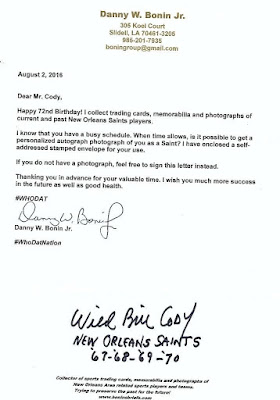 Danny W. Bonin Jr.
305 Koel Court
Slidell, LA 70461-3206
985-201-7935
boningroup@gmail.com
August 2, 2016
Dear Mr. Cody,
Happy 72nd Birthday! I collect trading cards, memorabilia and photographs of
current and past New Orleans Saints players.
I know that you have a busy schedule. When time allows, is it possible to get a
personalized autograph photograph of you as a Saint? I have enclosed a self-
addressed stamped envelope for your use.
If you do not have a photograph, feel free to sign this letter instead.
Thanking you in advance for your valuable time. I wish you much more success
in the future as well as good health.
#WHODAT
Danny W. Bonin Jr.
Danny W. Bonin Jr.
#WhoDatNation
Wild Bill Cody
NEW ORLEANS SAINTS
'67-'68-'69-'70
Collector of sports trading cards, memorabilia and photographs of
New Orleans Area related sports players and teams.
Trying to preserve the past for the future!
www.boninbriefs.com